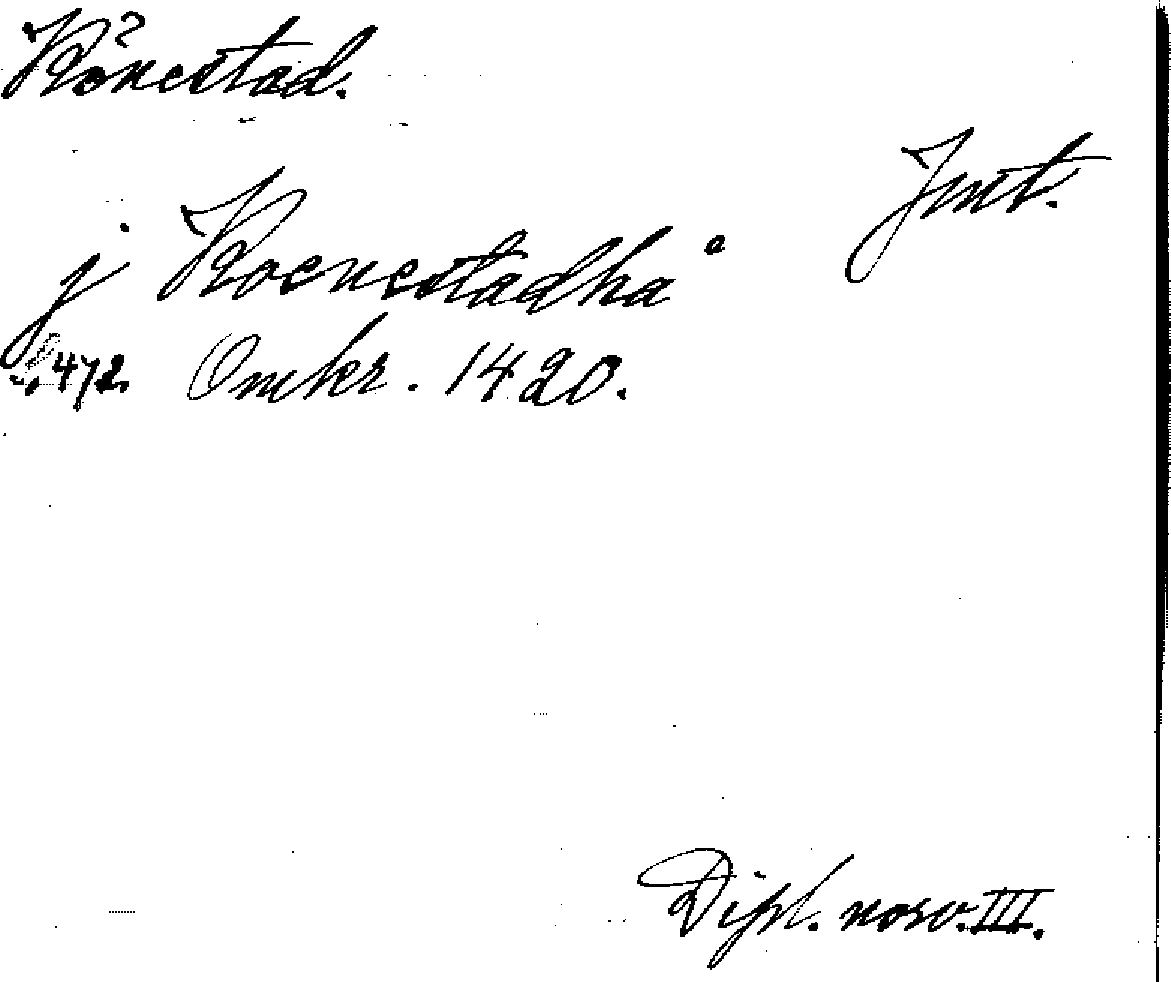 Könestad.
Jmt.
j Koenestadha
s. 472. Omkr. 1420.
Dipl. norv. III.